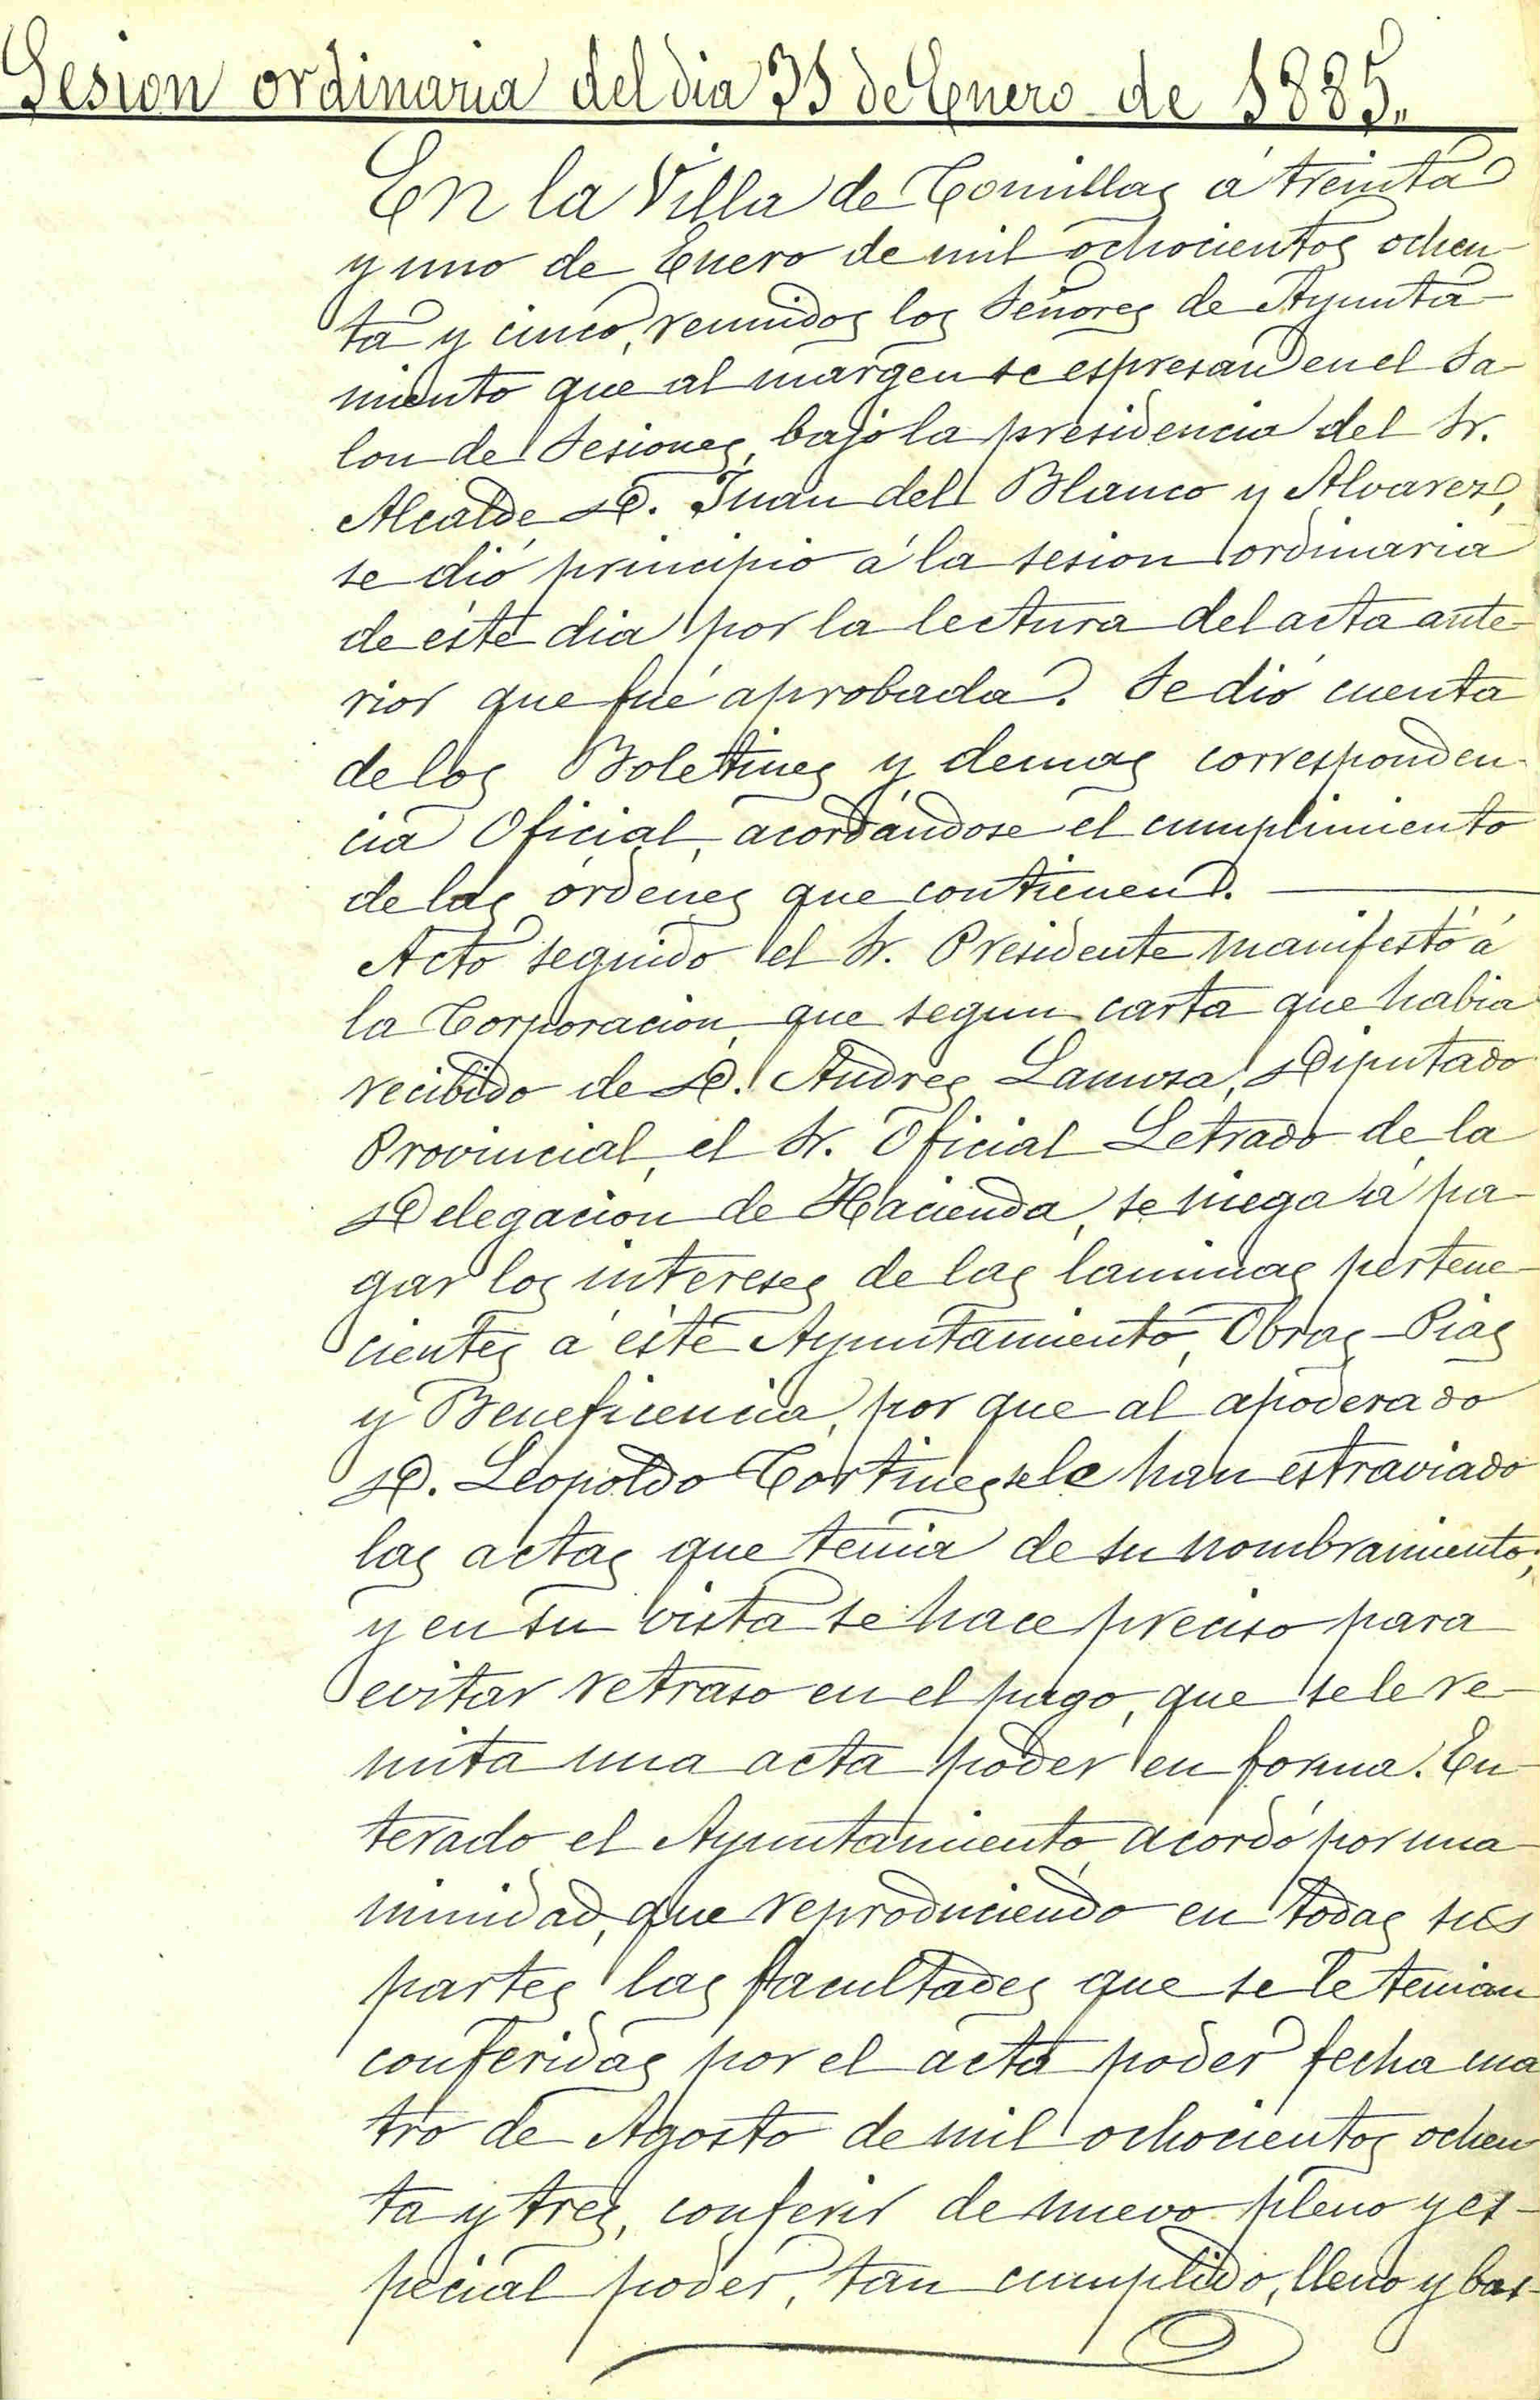 Sesion ordinaria del dia 31 de Enero de 1885.,
En la Villa de Comillas á treinta
y uno de Enero de mil ochocientos ochen-
ta y cinco, reunidos los Señores de Ayunta-
miento que al margen se espresan en el Sa-
lon de Sesiones, bajo la presidencia del Sr.
Alcalde D. Juan del Blanco y Alvarez,
se dió principio á la sesion ordinaria
de éste dia por la lectura del acta ante-
rior que fué aprobada. Se dió cuenta
de los Boletines y demas corresponden-
cia Oficial, acordándose el cumplimiento
de las órdenes que contienen.
Acto seguido el Sr. Presidente manifestó á
la Corporacion, que segun carta que habia
recibido de D. Andres Lamuza, Diputado
Provincial, el Sr. Oficial Letrado de la
Delegacion de Hacienda, se niega á pa-
gar los intereses de las laminas pertene-
cientes á éste Ayuntamiento, Obras-Pias
y Beneficencia, por que al apoderado
D. Leopoldo Cortines se le han estraviado
las actas que tenia de su nombramiento;
y en su vista se hace preciso para
evitar retraso en el pago, que se le re-
mita una acta poder en forma. En-
terado el Ayuntamiento, acordó por una-
nimidad, que reproduciendo en todas sus
partes las facultades que se le tenian
conferidas por el acta poder fecha cua
tro de Agosto de mil ochocientos ochen
ta y tres, conferir de nuevo pleno y es-
pecial poder, tan cumplido, lleno y bas-